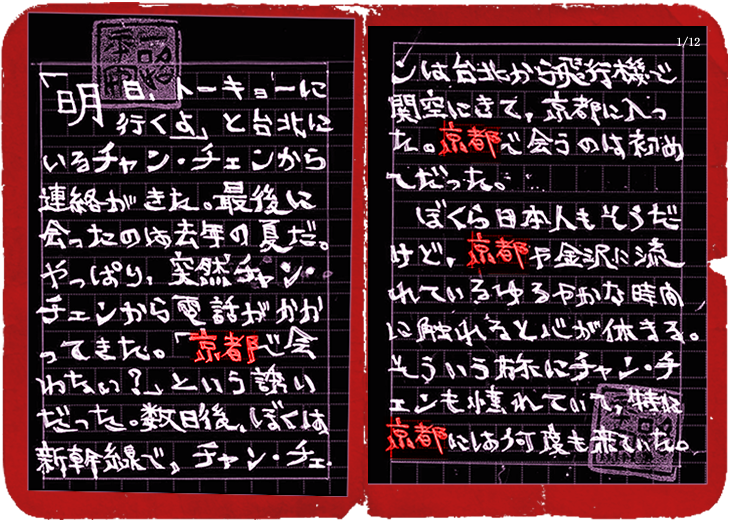 「明日、トーキョーに
行くよ」と台北に
いるチャン・チェンから
連絡がきた。最後に
会ったのは去年の夏だ。
やっぱり、突然チャン・
チェンから電話がかか
ってきた。「京都で会
わない？」という誘い
だった。数日後、ぼくは
新幹線で、チャン・チェ
1/12
ンは台北から飛行機で
関空にきて、京都に入っ
た。京都で会うのは初め
てだった。
ぼくら日本人もそうだ
けど、京都や金沢に流
れているゆるやかな時間
に触れると心が休まる。
そういう旅にチャン・チ
ェンも憧れていて、特に
京都には何度も来ていた。